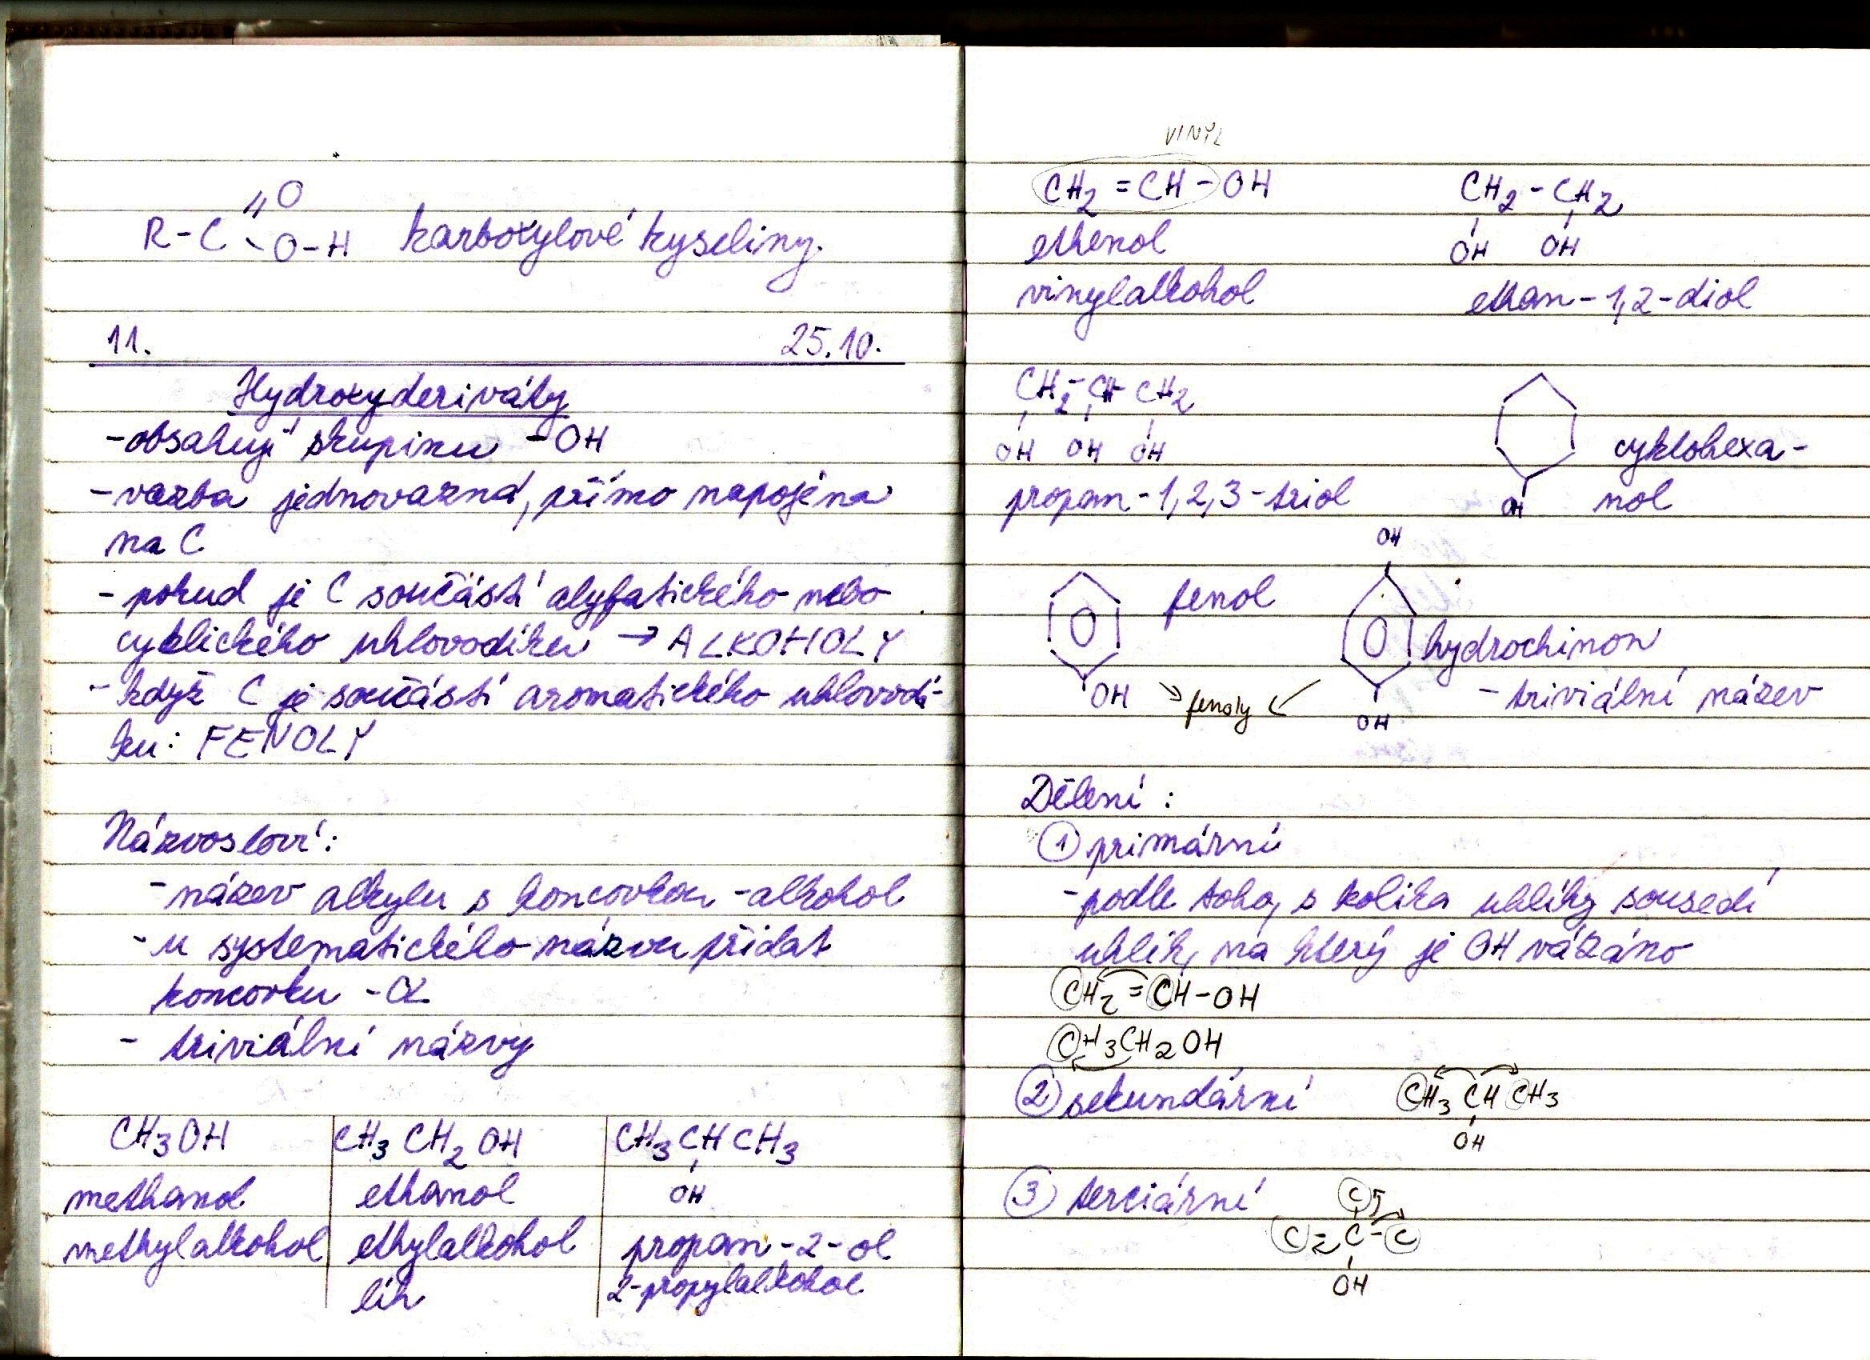 O
R-C
O-H karboxylové kyseliny.
11. 25.10.
Hydroxyderiváty
-obsahují skupinu -OH
-vazba jednovazná, přímo napojéna
na C
- pokud je C součástí alyfatického nebo
cyklického uhlovodíku → ALKOHOLY
- když C je součástí aromatického uhlovodí-
ku: FENOLY
Názvosloví:
-název alkylu s koncovkou -alkohol
-u systematického názvu přidat
koncovku -OL
- triviální názvy
CH3OH CH3 CH2 OH CH3CHCH3
OH
methanol ethanol
methylalkohol ethylalkohol propan-2-ol
líh 2-propylalkohol
VINYL
CH2=CH-OH CH2-CH2
OH OH
ethenol
vinylalkohol ethan-1,2-diol
CH2-CH CH2
OH OH OH
cyklohexa-
propan-1,2,3-triol OH nol
OH
fenol
hydrochinon
OH → fenoly ← OH - triviální název
Dělení:
① primární
-podle toho, s kolika uhlíky sousedí
uhlík, na který je OH vázáno
CH2=CH-OH
CH3CH2OH
② sekundární CH3 CH CH3
OH
③ terciární C
C-C-C
OH